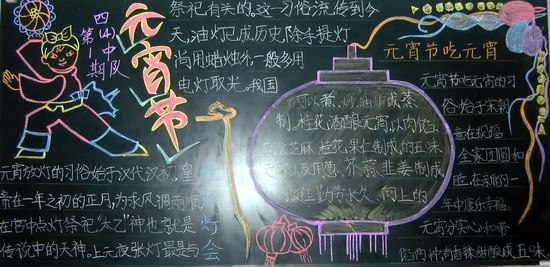 四(4)中队
第一期
元宵节
元宵放灯的习俗始于汉代汉初。皇
帝在一年之初的正月,为求风调雨顺,
在宫中点灯祭祀"太乙"神也就是
传说中的天神。上元夜张灯最是与
祭祀有关的。这一习俗流传到今
天,油灯已成历史,除手提灯
尚用蜡烛外一般多用
电灯取光。我国
灯会
可以煮、炒、油炸或蒸
制。桂花酒酿元宵,以肉馅、
芝麻、桂花、果仁制成的五味
用葱、芥、蒜、韭、姜制成,
勤劳永久、向上的
元宵节吃元宵
元宵节吃元宵的习
俗始于宋朝
意在祝福
全家团圆和
睦,在新的一
年中康乐幸福。
元宵分实心和带
馅两种,有香辣甜酸咸五味